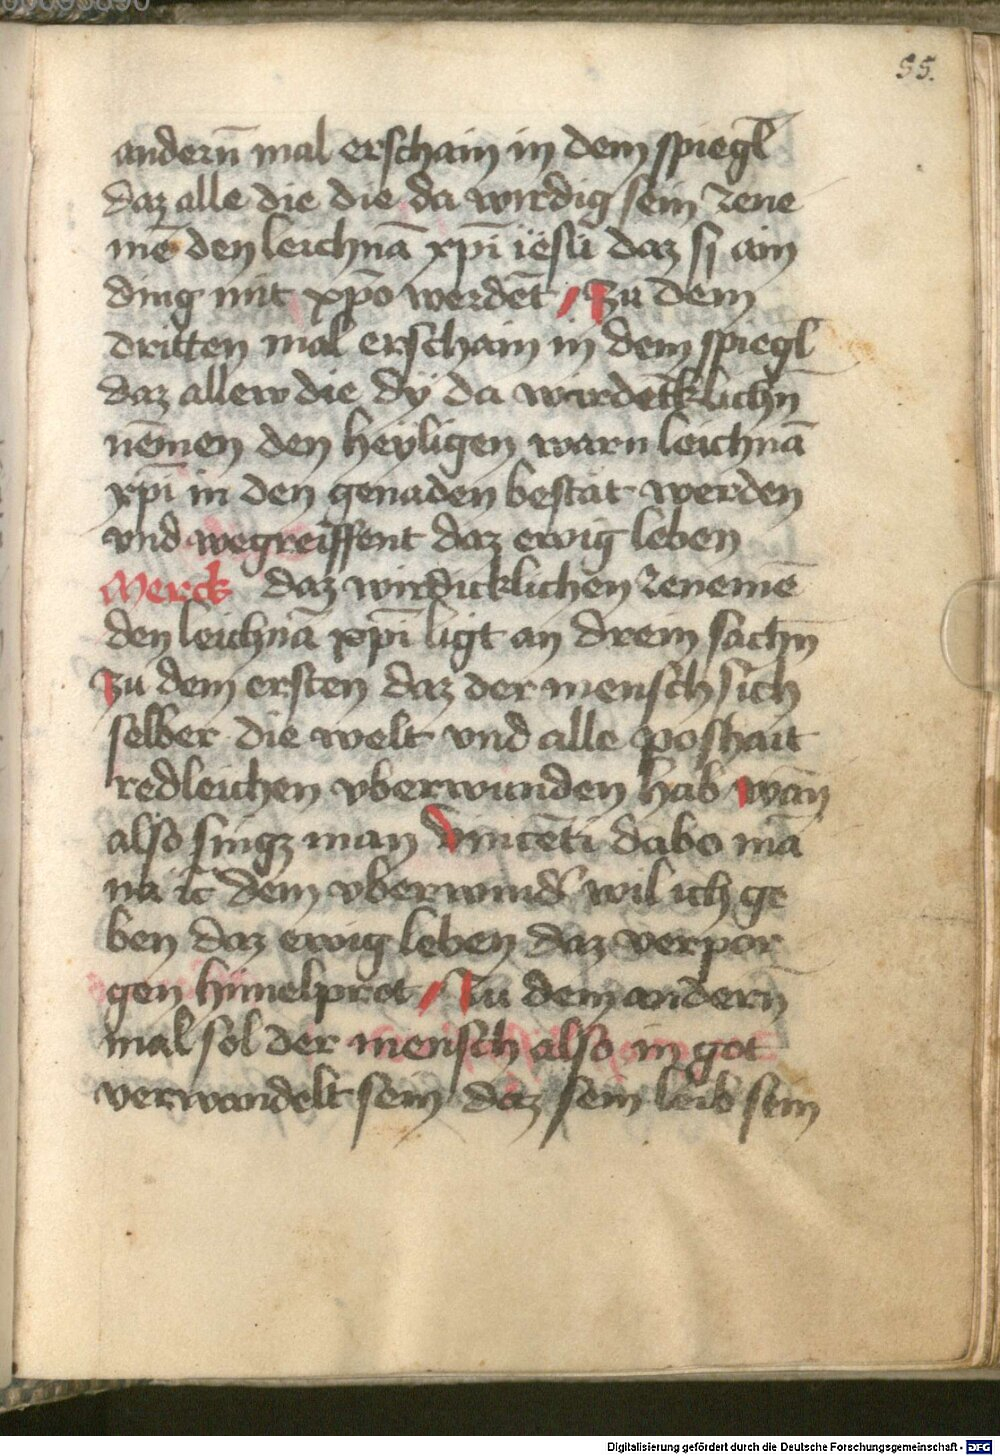 55.
andern̄ mal erschain in dem spiegl̄
daz alle die die da wirdig sein zene
mē den leichnā xp̄i iesū daz si ain
ding mit xp̄o werdēt / Zu dem
dritten mal erschain in dem spiegl̄
daz allew die dÿ da wirdetklichn̄
nēmen den heyligen warn leichnā
xp̄i in den genaden bestät werden
vnd wegreiffent daz ewig leben
Merck daz wirdicklichen zenemē
den leichnā xp̄i ligt an drein sachn̄
Zu dem ersten daz der mensch sich
selber die welt vnd alle poshait
redleichen vberwunden hab wān
also singz man vincēti dabo mā
na ic̄ dem vberwind' wil ich ge
ben daz ewig leben daz verpor
gen himelprot / Zu dem andern̄
mal sol der mensch also in got
verwandelt sein daz sein leib sein
Digitalisierung gefördert durch die Deutsche Forschungsgemeinschaft - DFG